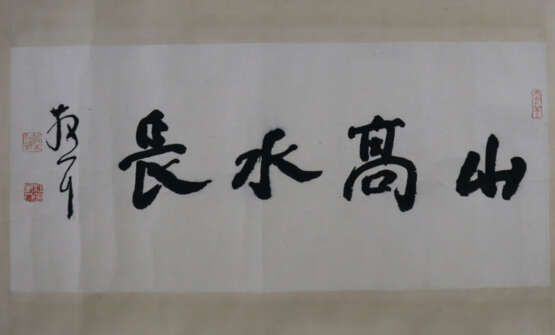 山高水長